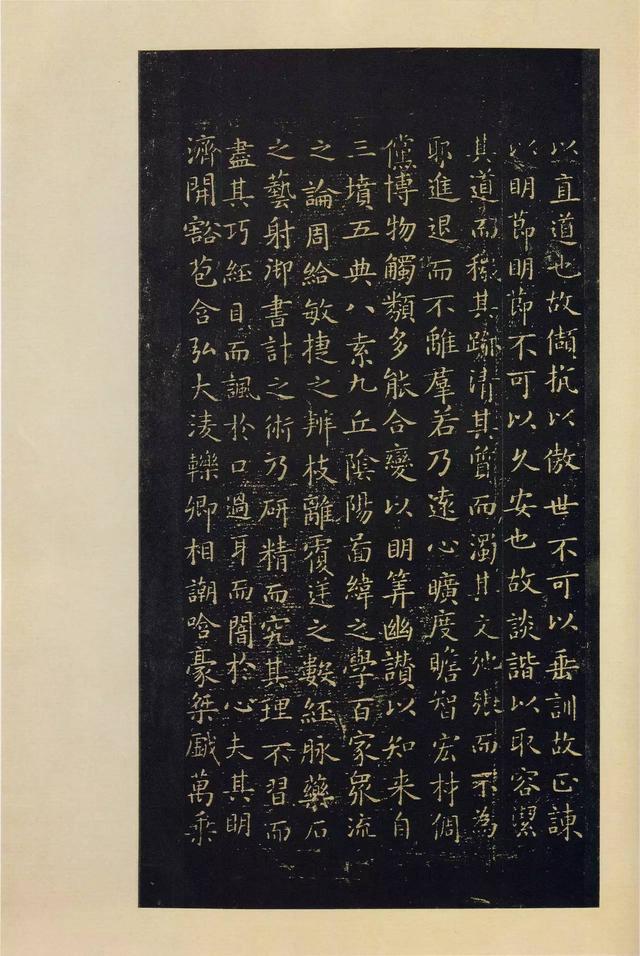 以直道也故傾抗以傲世不可以垂訓故正諫
以明節明節不可以久安也故談諧以取容潔
其道而穢其跡清其質而濁其文弛張而不為
耶進退而不離羣若乃遠心曠度贍智宏材倜
儻博物觸類多能合變以明筭幽讃以知来自
三墳五典八索九丘陰陽啚緯之學百家眾流
之論周給敏捷之辨枝離覆逆之數經脉藥石
之藝射御書計之術乃研精而究其理不習而
盡其巧經目而諷於口過耳而闇於心夫其明
濟開豁苞含弘大淩轢卿相謿哈豪桀戲萬乘